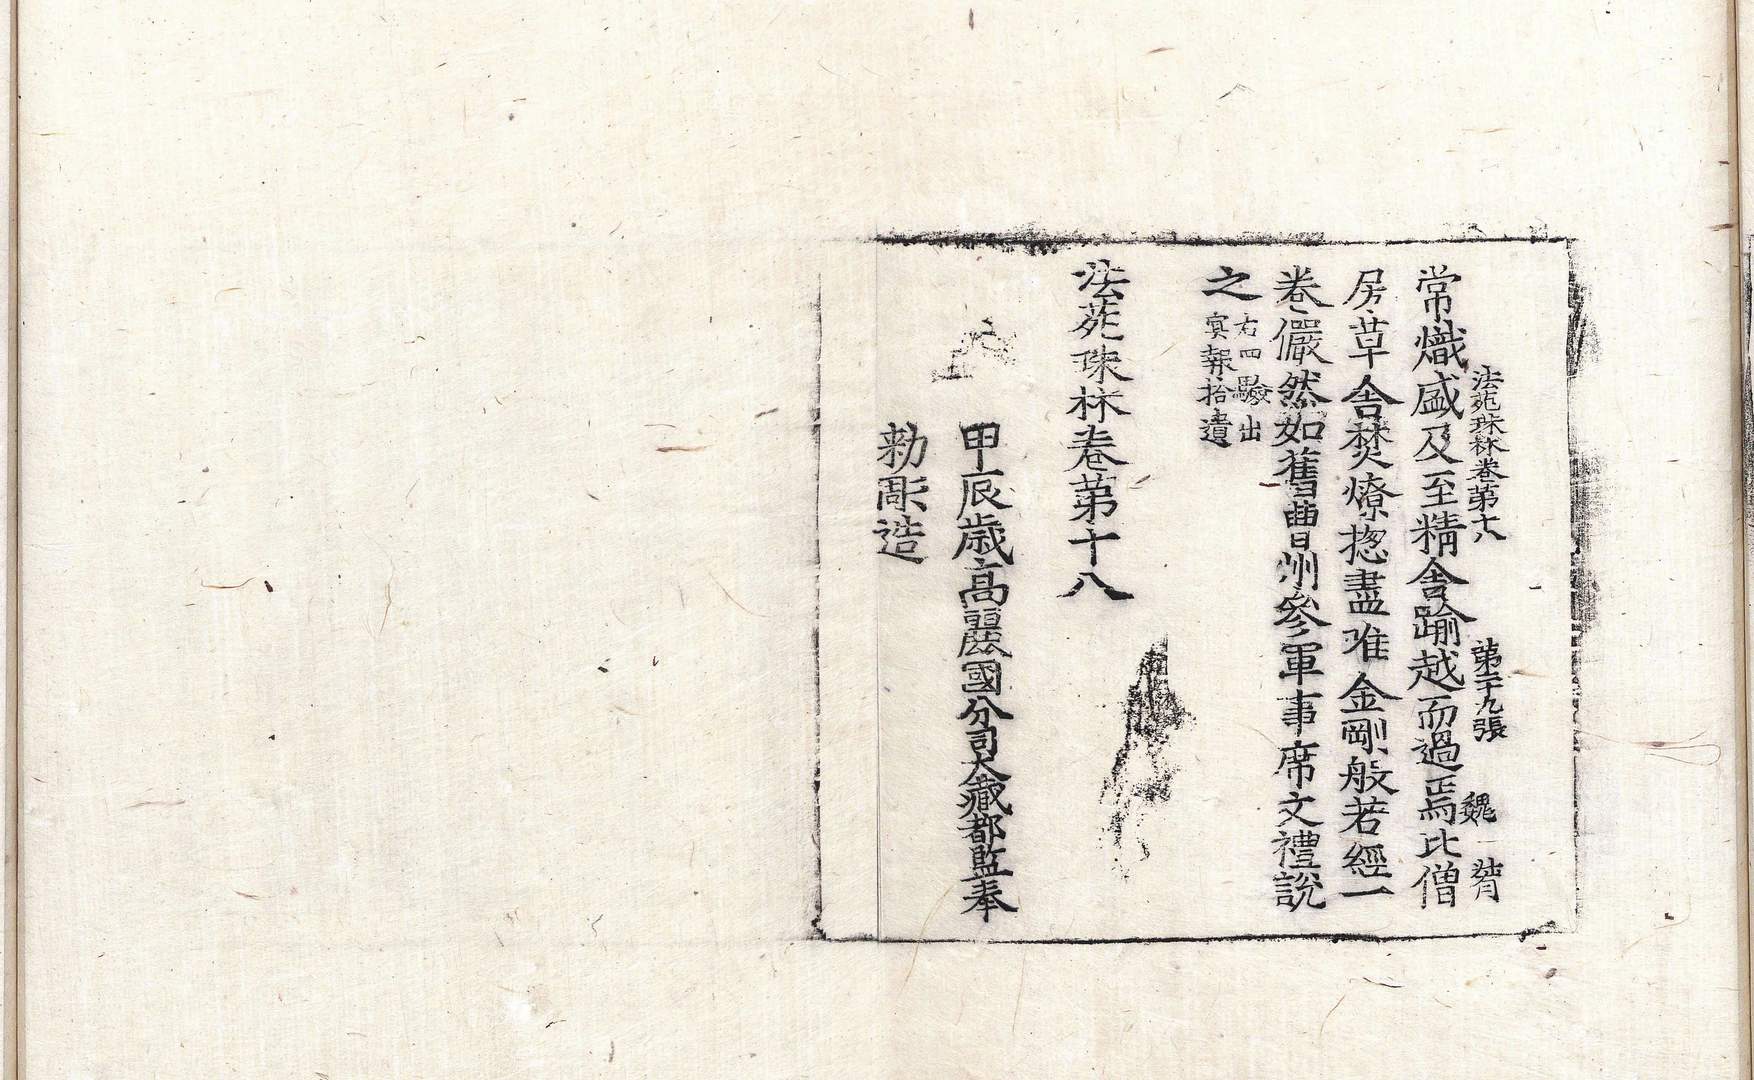 法苑珠林卷第十八 第二十九張 魏
常熾盛及至精舍踰越而過焉比僧
房草舍焚燎揔盡唯金剛般若經一
卷儼然如舊曹州參軍事席文禮說
之右四驗出冥報拾遺
法苑珠林卷第十八
甲辰歲高麗國分司大藏都監奉
勑彫造